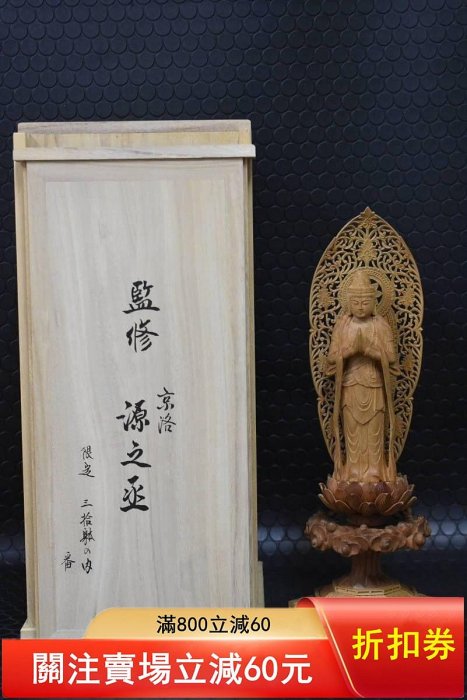 監修
京洛
源之丞
限定 三拾躰の内
番
滿800立減60
關注賣場立減60元
折扣券